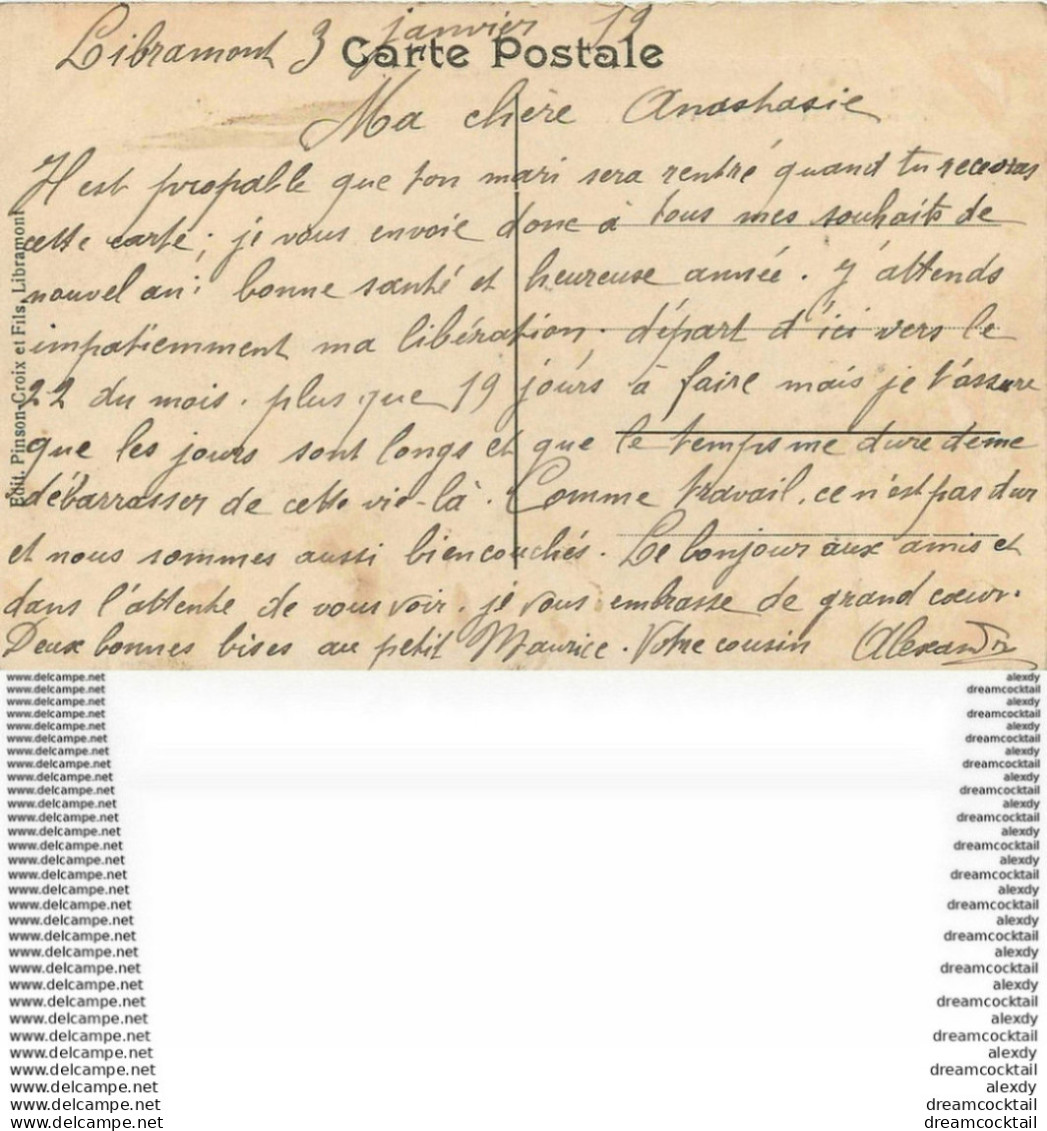 Libramont 3 janvier 19
Carte Postale
Ma chère Anasthasie
Il est propable que ton mari sera rentré quand tu recevras
cette carte; je vous envoie donc à tous mes souhaits de
nouvel an: bonne santé et heureuse année. J'attends
impatiemment ma libération. départ d'ici vers le
22 du mois. plus que 19 jours à faire mais je t'assure
que les jours sont longs et que le temps me dure de me
débarrasser de cette vie-là. Comme travail, ce n'est pas dur
et nous sommes aussi bien couchés. Le bonjour aux amis et
dans l'attente de vous voir. je vous embrasse de grand cœur.
Deux bonnes bises au petit Maurice. Votre cousin Alexandre
Edit. Pinson-Croix et Fils, Libramont
www.delcampe.net alexdy
www.delcampe.net dreamcocktail
www.delcampe.net alexdy
www.delcampe.net dreamcocktail
www.delcampe.net alexdy
www.delcampe.net dreamcocktail
www.delcampe.net alexdy
www.delcampe.net dreamcocktail
www.delcampe.net alexdy
www.delcampe.net dreamcocktail
www.delcampe.net alexdy
www.delcampe.net dreamcocktail
www.delcampe.net alexdy
www.delcampe.net dreamcocktail
www.delcampe.net alexdy
www.delcampe.net dreamcocktail
www.delcampe.net alexdy
www.delcampe.net dreamcocktail
www.delcampe.net alexdy
www.delcampe.net dreamcocktail
www.delcampe.net alexdy
www.delcampe.net dreamcocktail
www.delcampe.net alexdy
www.delcampe.net dreamcocktail
www.delcampe.net alexdy
www.delcampe.net dreamcocktail
www.delcampe.net alexdy
www.delcampe.net dreamcocktail
www.delcampe.net alexdy
www.delcampe.net dreamcocktail
www.delcampe.net dreamcocktail